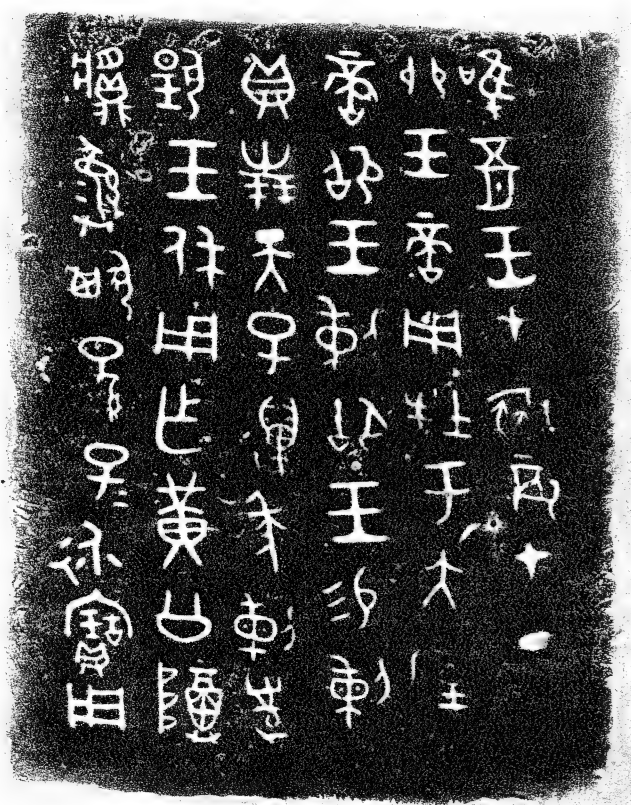 唯五月王才□辰才丁
卯王啻用牡于大室
啻卲王剌御王易剌
貝卅朋天子萬年剌對
揚王休用乍黃公尊
彝其孫子永寶用